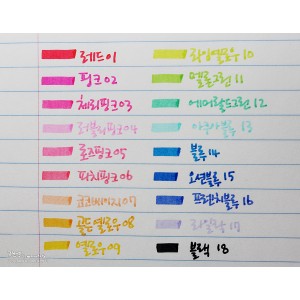 레드01
핑크02
체리핑크03
러블리핑크04
로즈핑크05
피치핑크06
코코베이지07
골든옐로우08
옐로우09
라임옐로우10
멜론그린11
에메랄드그린12
아쿠아블루13
블루14
오션블루15
프렌치블루16
라일락17
블랙18